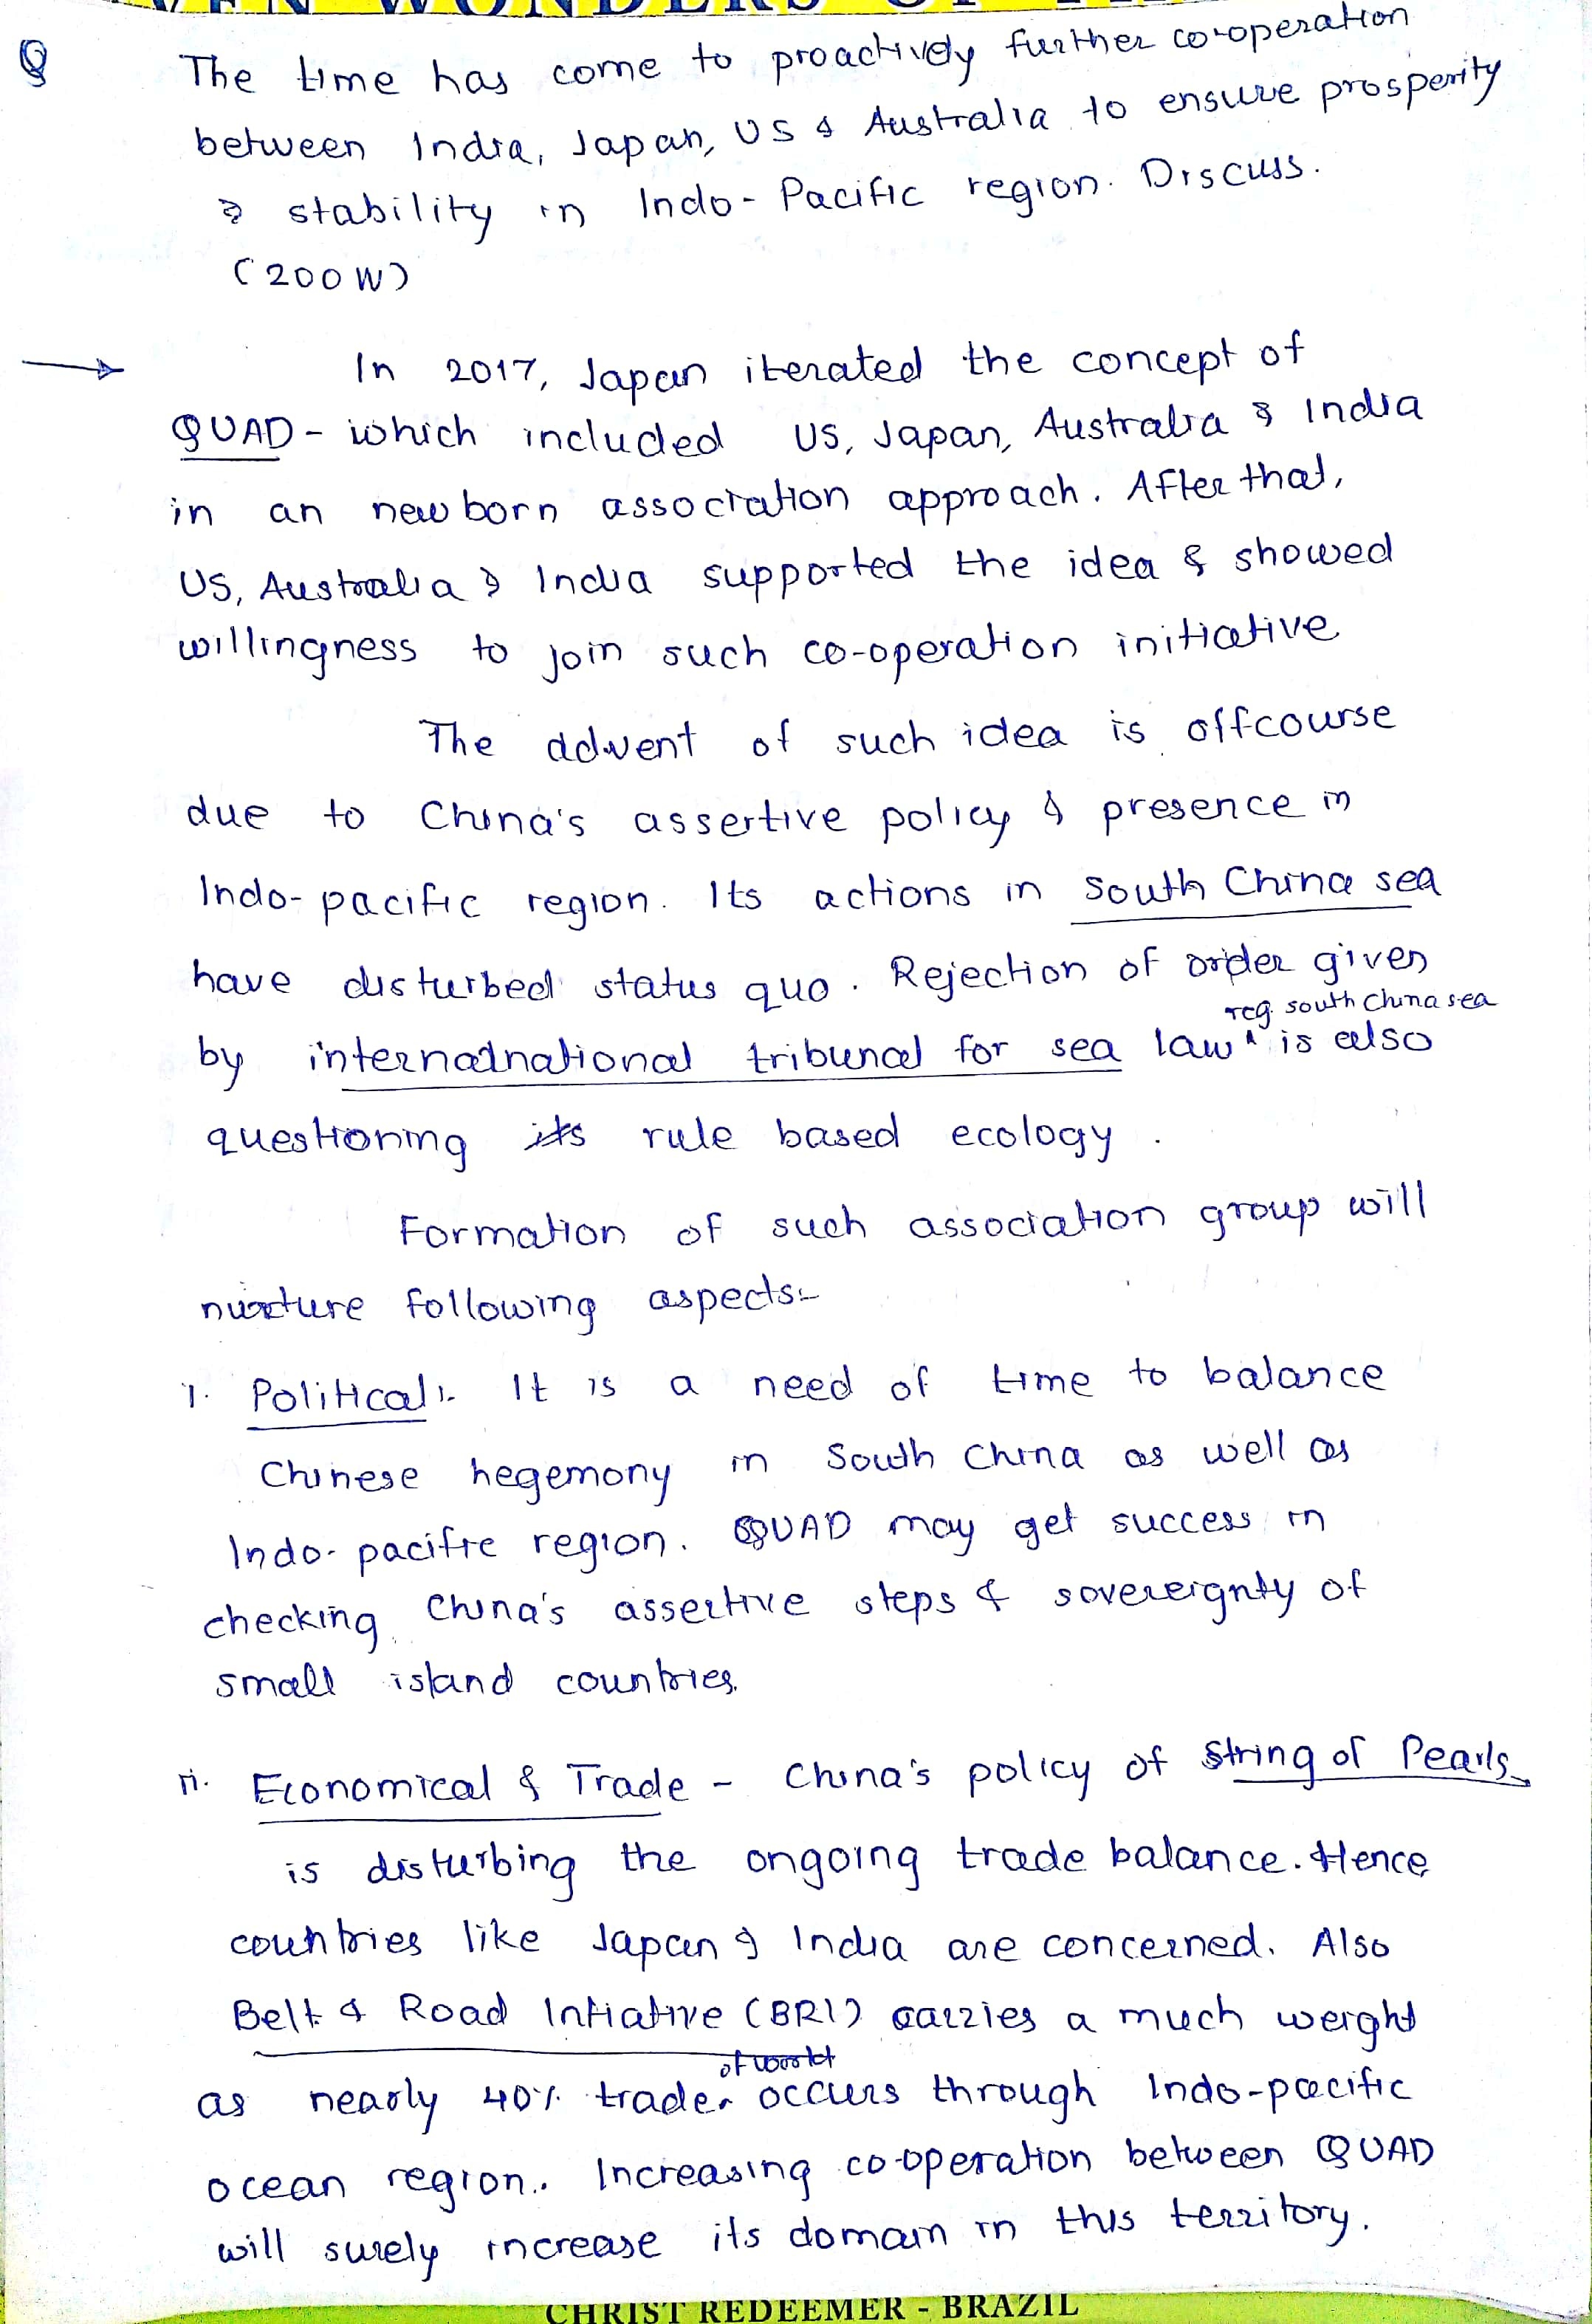 VEN WONDERS OF
Q The time has come to proactively further co-operation
between India, Japan, US & Australia to ensure prosperity
& stability in Indo-Pacific region. Discuss.
(200 W)
→ In 2017, Japan iterated the concept of
QUAD - which included US, Japan, Australia & India
in an new born association approach. After that,
US, Australia & India supported the idea & showed
willingness to join such co-operation initiative
The advent of such idea is offcourse
due to China's assertive policy & presence in
Indo-pacific region. Its actions in South China sea
have disturbed status quo. Rejection of order given
reg. south china sea
by internatnational tribunal for sea law ^ is also
questioning its rule based ecology.
Formation of such association group will
nurture following aspects:-
i. Political:- It is a need of time to balance
Chinese hegemony in South China as well as
Indo-pacific region. QUAD may get success in
checking China's assertive steps & sovereignty of
small island countries.
ii. Economical & Trade - China's policy of String of Pearls
is disturbing the ongoing trade balance. Hence
countries like Japan & India are concerned. Also
Belt & Road Intiative (BRI) carries a much weight
of world
as nearly 40% trade ^ occurs through Indo-pacific
ocean region. Increasing co-operation between QUAD
will surely increase its domain in this territory.
CHRIST REDEEMER - BRAZIL